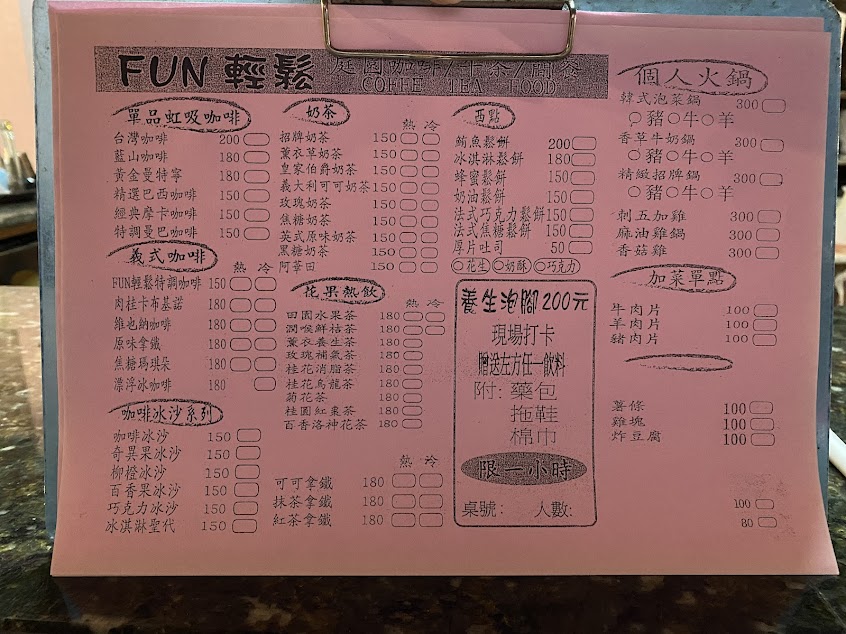 FUN 輕鬆 庭園咖啡/牛茶/簡餐
COFFE TEA FOOD
單品虹吸咖啡
台灣咖啡 200
藍山咖啡 180
黃金曼特寧 180
精選巴西咖啡 150
經典摩卡咖啡 150
特調曼巴咖啡 150
義式咖啡
熱 冷
FUN輕鬆特調咖啡 150
肉桂卡布基諾 180
維也納咖啡 180
原味拿鐵 180
焦糖瑪琪朵 180
漂浮冰咖啡 180
咖啡冰沙系列
咖啡冰沙 150
奇異果冰沙 150
柳橙冰沙 150
百香果冰沙 150
巧克力冰沙 150
冰淇淋聖代 150
奶茶
熱 冷
招牌奶茶 150
薰衣草奶茶 150
皇家伯爵奶茶 150
義大利可可奶茶 150
玫瑰奶茶 150
焦糖奶茶 150
英式原味奶茶 150
黑糖奶茶 150
阿華田 150
花果熱飲
熱 冷
田園水果茶 180
潤喉鮮桔茶 180
薰衣養生茶 180
玫瑰補氣茶 180
桂花消脂茶 180
桂花烏龍茶 180
菊花茶 180
桂圓紅棗茶 180
百香洛神花茶 180
熱 冷
可可拿鐵 180
抹茶拿鐵 180
紅茶拿鐵 180
西點
鮪魚鬆餅 200
冰淇淋鬆餅 180
蜂蜜鬆餅 150
奶油鬆餅 150
法式巧克力鬆餅 150
法式焦糖鬆餅 150
厚片吐司 50
花生 奶酥 巧克力
養生泡腳 200元
現場打卡
贈送左方任一飲料
附: 藥包
拖鞋
棉巾
限一小時
桌號: 人數:
個人火鍋
韓式泡菜鍋 300
豬 牛 羊
香草牛奶鍋 300
豬 牛 羊
精緻招牌鍋 300
豬 牛 羊
刺五加雞 300
麻油雞鍋 300
香菇雞 300
加菜單點
牛肉片 100
羊肉片 100
豬肉片 100
薯條 100
雞塊 100
炸豆腐 100
100
80